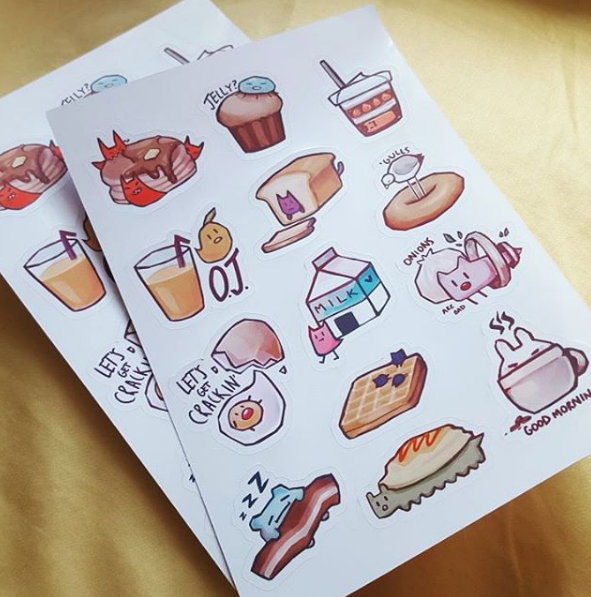 JELLY?
JELLY?
'GULLS
O.J.
ONIONS
ARE BAD
MILK
LET'S
GET
CRACKIN'
LET'S
GET
CRACKIN'
GOOD MORNIN
zZZ